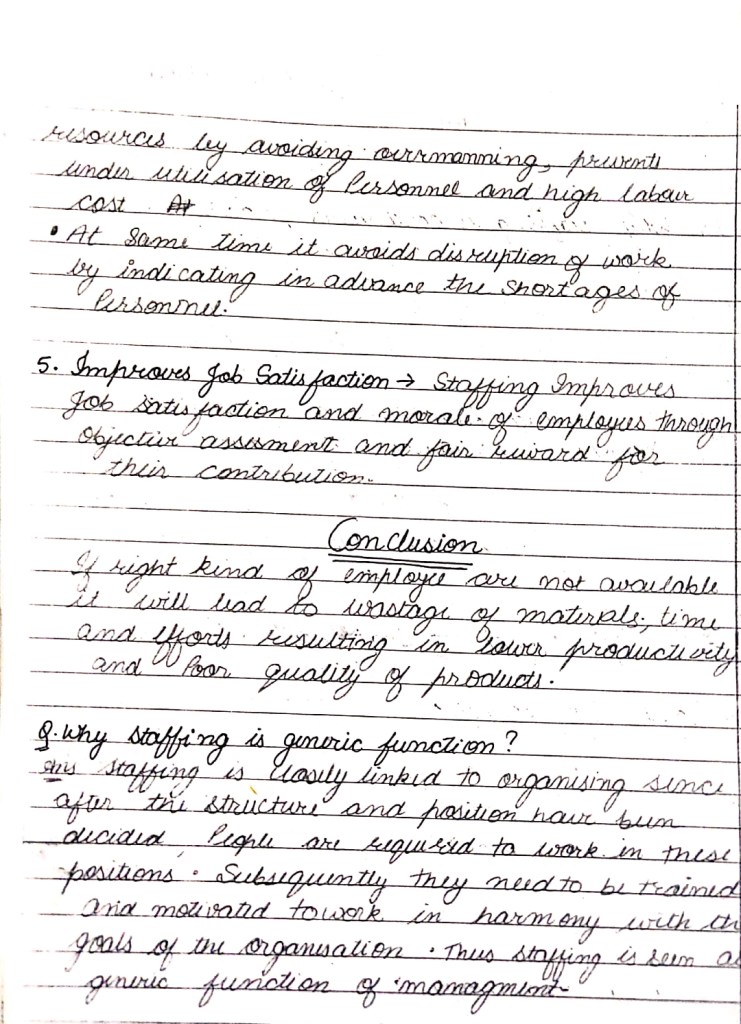 resources by avoiding overmanning, prevents
under utilisation of Personnel and high labour
cost At
• At same time it avoids disruption of work
by indicating in advance the shortages of
Personnel.
5. Improves Job Satisfaction → Staffing Improves
Job satisfaction and morale of employees through
Objective assesment and fair reward for
their contribution.
Conclusion
If right kind of employee are not available
it will lead to wastage of materials, time
and efforts resulting in lower productivity
and Poor quality of products.
Q. Why staffing is generic function?
Ans staffing is closely linked to organising since
after the structure and position have been
decided, People are required to work in these
positions. Subsequently they need to be trained
and motivated to work in harmony with th
goals of the organisation. Thus staffing is seen a
generic function of managment